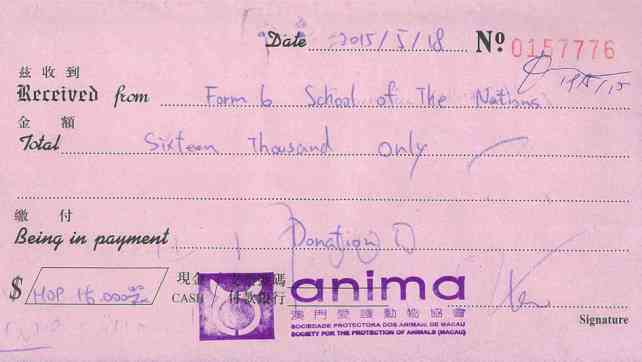 Date 2015/5/18 Nº 0157776
19/5/15
茲收到
Received from Form 6 School of The Nations
金額
Total Sixteen Thousand Only
繳付
Being in payment Donation
$ MOP 16,000
現金
CASH 付款銀行
anima
澳門愛護動物協會
SOCIEDADE PROTECTORA DOS ANIMAIS DE MACAU
SOCIETY FOR THE PROTECTION OF ANIMALS (MACAU)
Signature